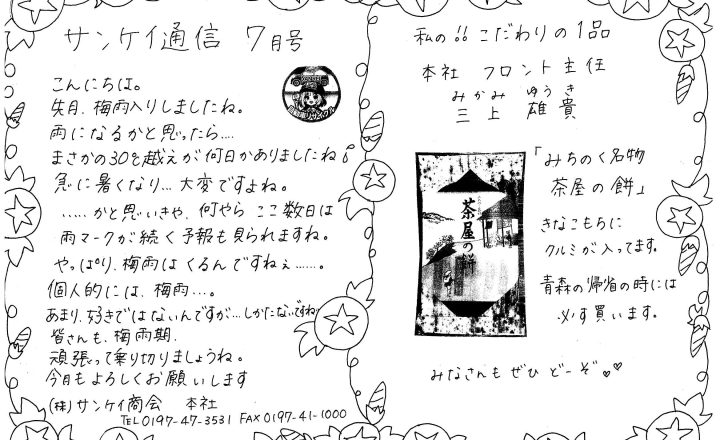 サンケイ通信 7月号
こんにちは。
先月、梅雨入りしましたね。
雨になるかと思ったら....
まさかの30を越えが何日かありましたね!
急に暑くなり...大変ですよね。
.....かと思いきや、何やら ここ数日は
雨マークが続く予報も見られますね。
やっぱり、梅雨は くるんですねぇ......。
個人的には、梅雨...。
あまり、好きではないんですが...しかたないですね
皆さんも、梅雨期、
頑張って乗り切りましょうね。
今月もよろしくお願いします
(株)サンケイ商会 本社
TEL 0197-47-3531 FAX 0197-41-1000
私の!!こだわりの1品
本社 フロント主任
みかみ ゆうき
三上 雄貴
茶屋の餅
「みちのく名物
茶屋の餅」
きなこもちに
クルミが入ってます。
青森の帰省の時には
必ず買います。
みなさんも ぜひ どーぞ♡♡